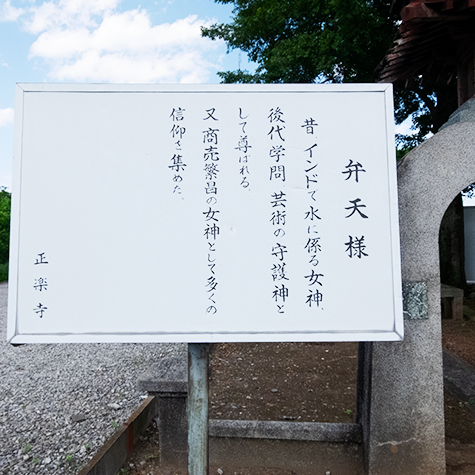 弁天様
昔 インドで水に係る女神、
後代学問、芸術の守護神と
して尊ばれる、
又 商売繁昌の女神として多くの
信仰を集めた、
正楽寺